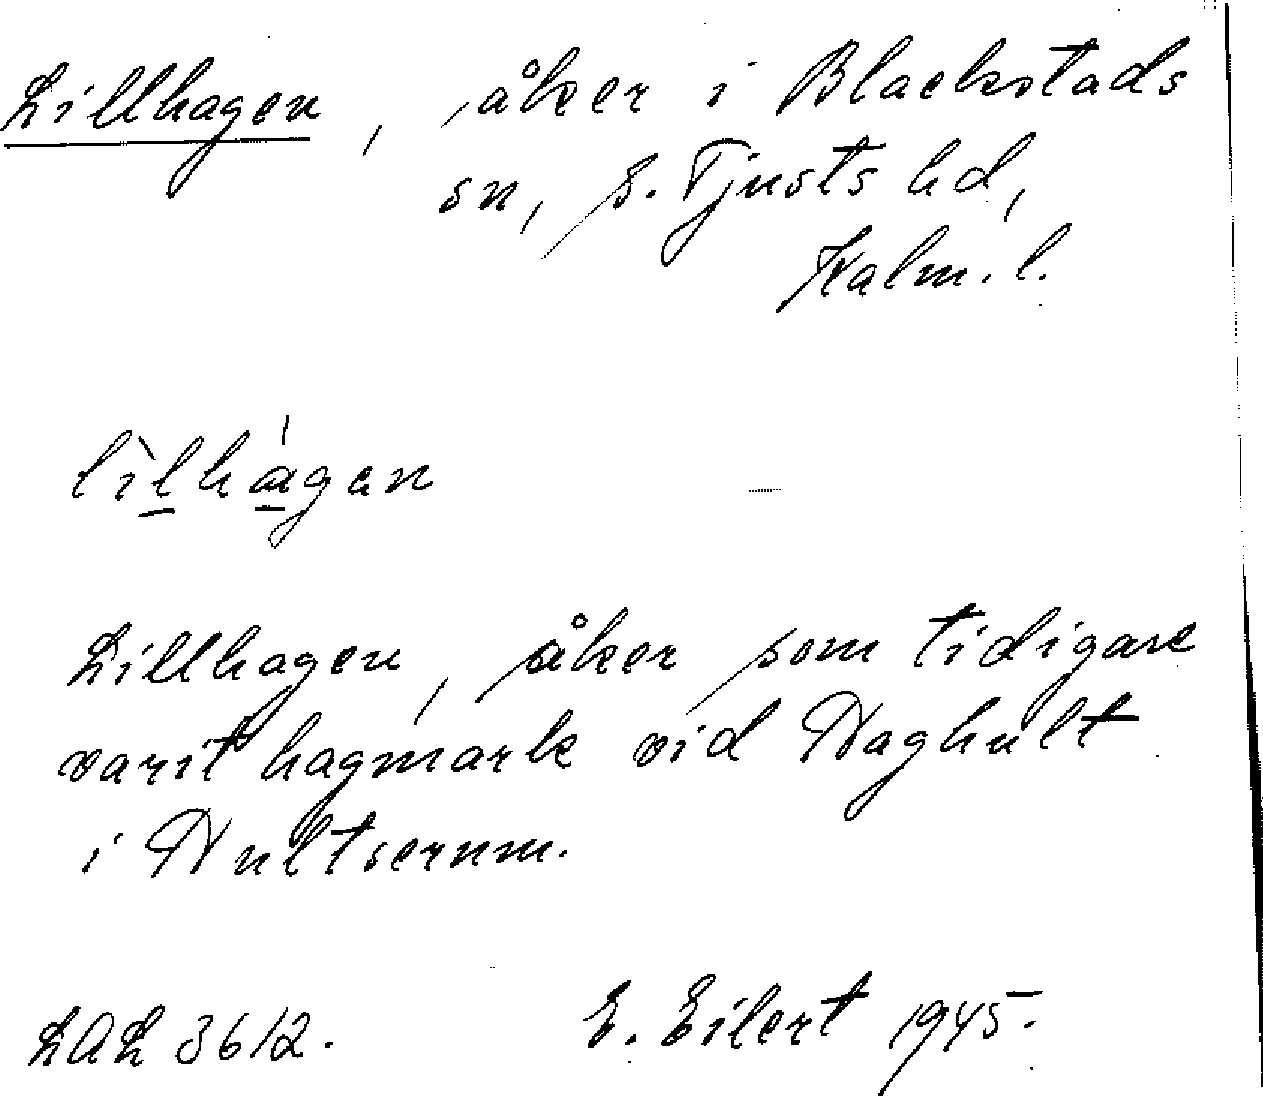 Lillhagen, åker i Blackstads
sn, S. Tjusts hd,
Kalm. l.
lìlhágen
Lillhagen, åker som tidigare
varit hagmark vid Haghult
i Hultserum.
LAL 3612. E. Eilert 1945.